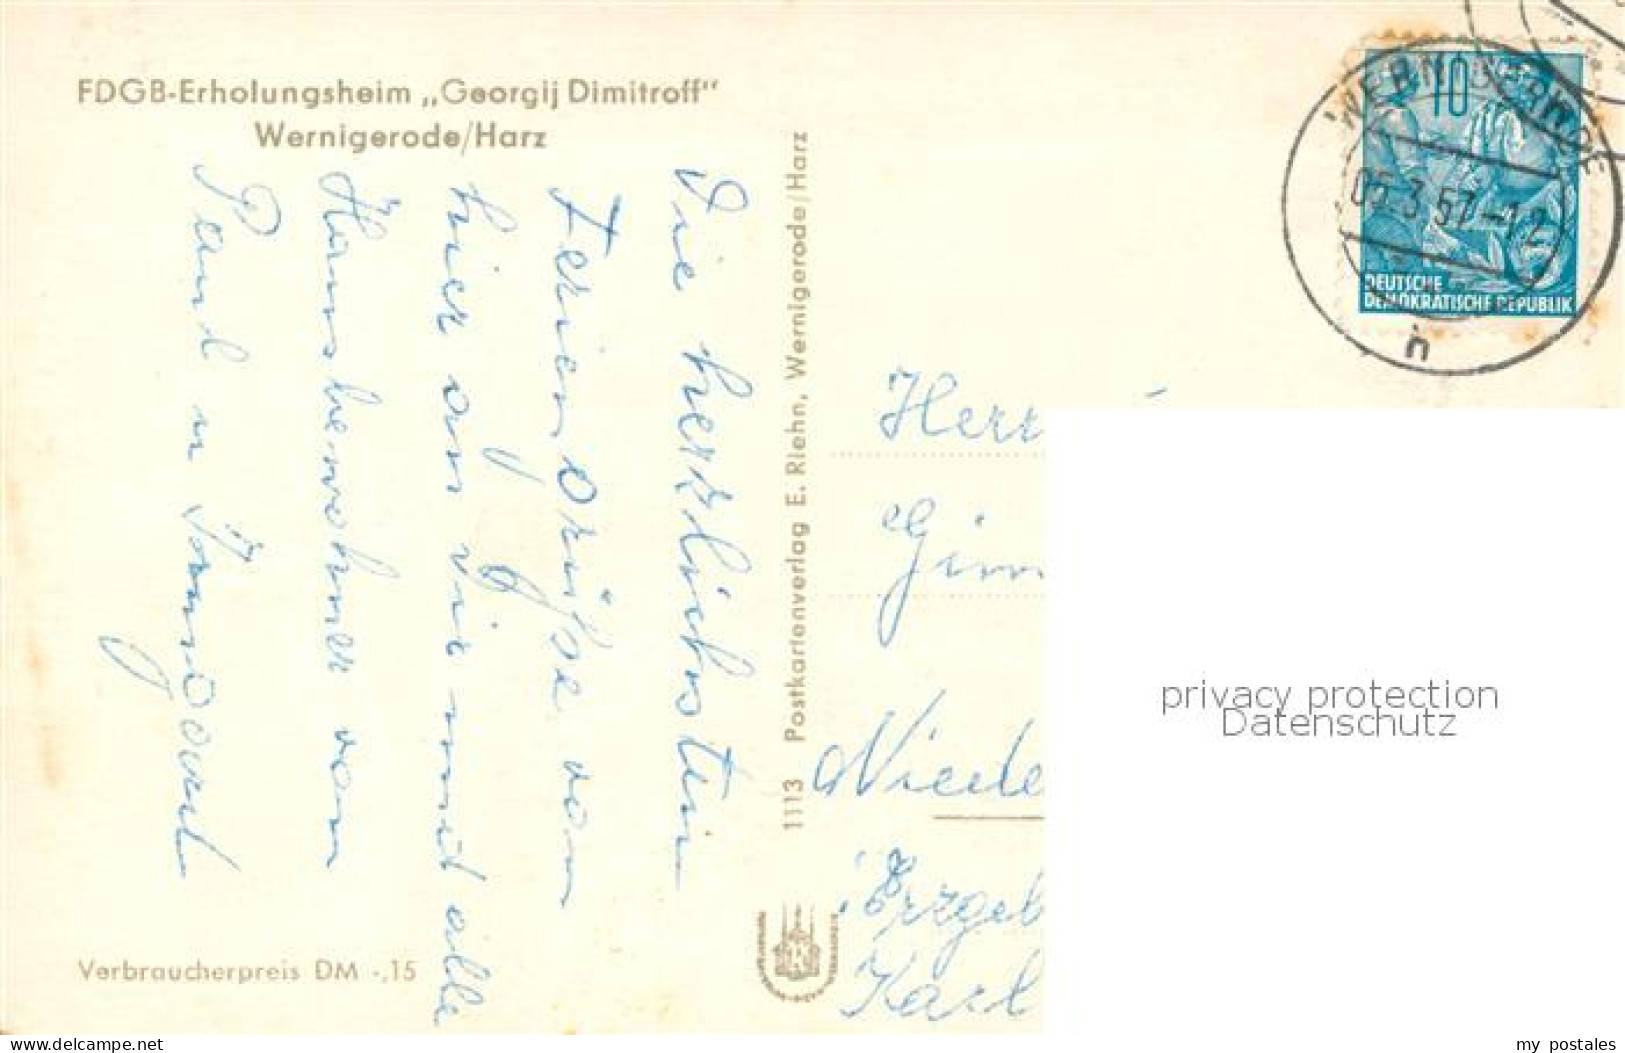 FDGB-Erholungsheim „Georgij Dimitroff"
Wernigerode/Harz
Die herzlichsten
Feriengrüße von
hier an Sie und alle
Hausbewohner von
Paul u
Verbraucherpreis DM -,15
1113 Postkartenverlag E. Riehn, Wernigerode/Harz
10
DEUTSCHE
DEMOKRATISCHE REPUBLIK
WERNIGERODE
05.3.57.-12
h
Herr
Niede
Erzgeb
Karl
privacy protection
Datenschutz
delcampe.net
my_postales